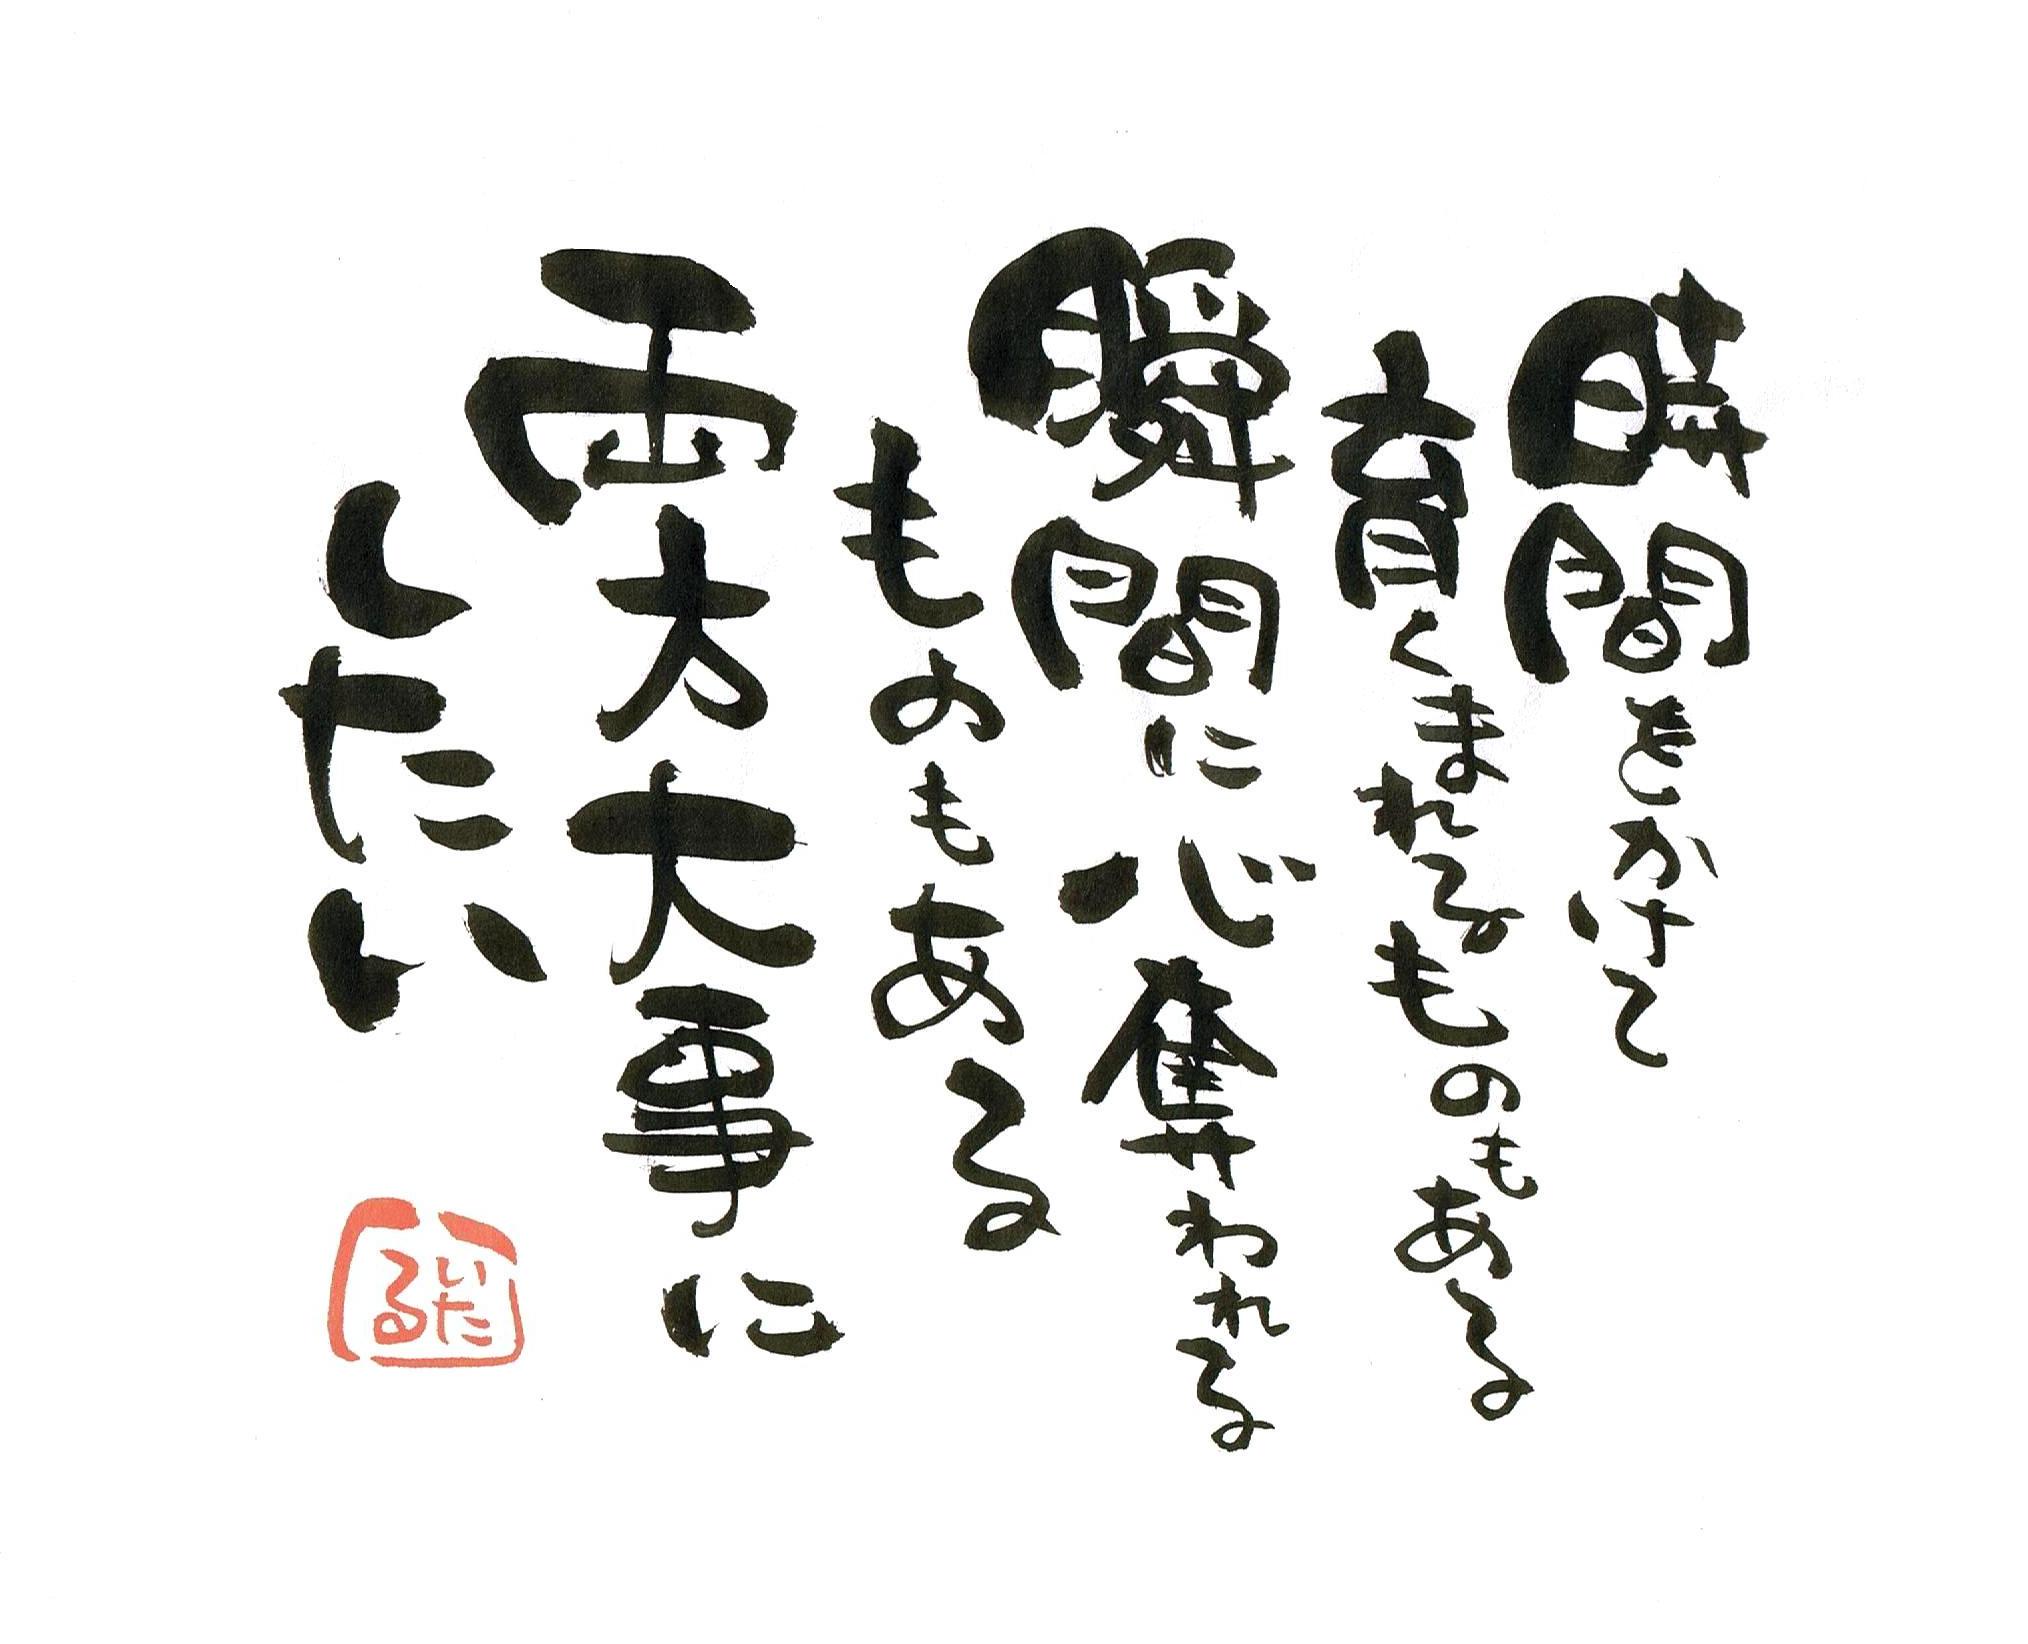 時間をかけて
育くまれるものもある
瞬間に心奪われる
ものもある
両方大事に
したい
いたる